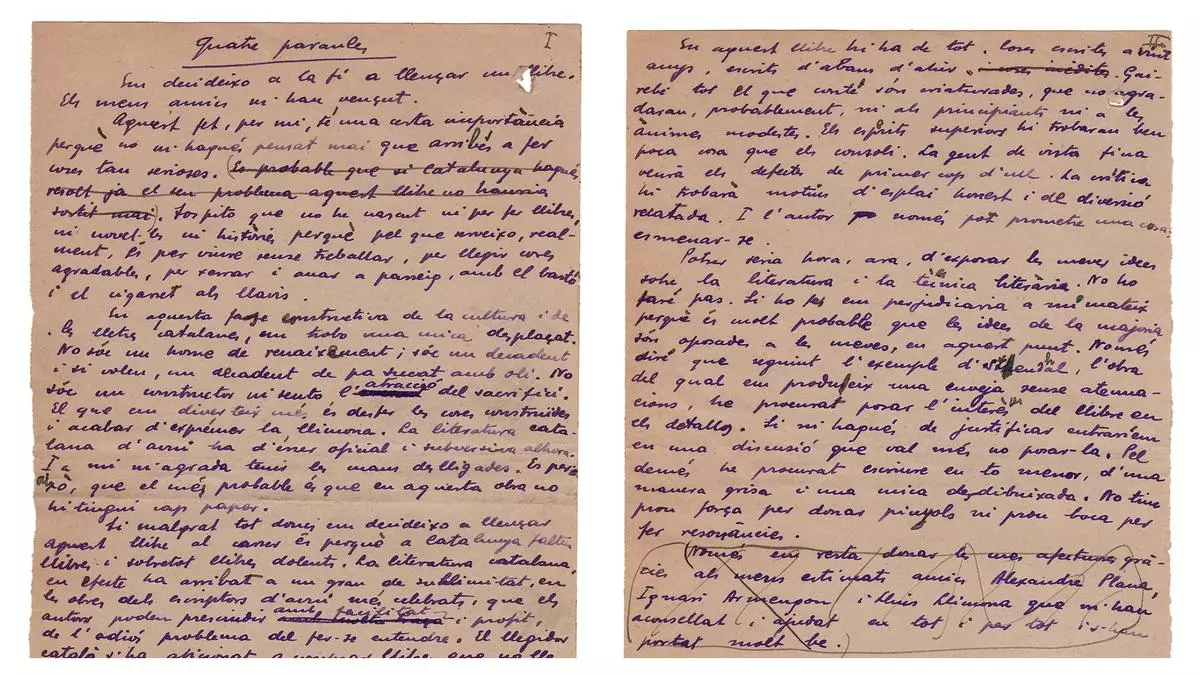 I
Quatre paraules
Em decideixo a la fi a llençar un llibre.
Els meus amics m'han vençut.
Aquest fet, per mi, té una certa importància
perquè no m'hagués pensat mai que arribés a fer
coses tan serioses. (Es probable que si Catalunya hagués
resolt ja el seu problema aquest llibre no hauria
sortit mai). Sospito que no he nascut ni per fer llibres,
ni novel·les ni històries perquè pel que serveixo, real-
ment, és per viure sense treballar, per llegir coses
agradables, per xerrar i anar a passeig, amb el bastó
i el cigarret als llavis.
En aquesta fase constructiva de la cultura i de
les lletres catalanes, em trobo una mica desplaçat.
No sóc un home de renaixement; sóc un decadent
i si volen, un decadent de pa sucat amb oli. No
sóc un constructor ni sento l'atracció del sacrifici.
El que em diverteix més és desfer les coses construïdes
i acabar d'exprémer la llimona. La literatura cata-
lana d'avui ha d'ésser oficial i subversiva alhora.
I a mi m'agrada tenir les mans deslligades. Es per
això, que el més probable és que en aquesta obra no
hi tingui cap paper.
Si malgrat tot doncs em decideixo a llençar
aquest llibre al carrer és perquè a Catalunya falten
llibres i sobretot llibres dolents. La literatura catalana,
en efecte ha arribat a un grau de sublimitat, en
les obres dels escriptors d'avui més celebrats, que els
autors poden prescindir amb facilitat i profit,
de l'odiós problema del fer-se entendre. El llegidor
català s'ha aficionat a comprar llibres que no
II
En aquest llibre hi ha de tot. Coses escrites a vint
anys, escrits d'abans d'ahir i coses inèdites. Gai-
rebé tot el que conté són criaturades, que no agra-
daran, probablement, ni als principiants ni a les
ànimes modestes. Els esprits superiors hi trobaran ben
poca cosa que els consoli. La gent de vista fina
veurà els defectes de primer cop d'ull. La crítica
hi trobarà motius d'esplai honest i de diversió
recatada. I l'autor només pot prometre una cosa:
esmenar-se.
Potser seria hora, ara, d'exposar les meves idees
sobre la literatura i la tècnica literària. No ho
faré pas. Si ho fes em perjudicaria a mi mateix
perquè és molt probable que les idees de la majoria
són oposades a les meves, en aquest punt. Només
diré que seguint l'exemple d'Stendhal, l'obra
del qual em produeix una enveja sense atenua-
cions, he procurat posar l'interès del llibre en
els detalls. Si m'hagués de justificar entraríem
en una discusió que val més no posar-la. Pel
demés he procurat escriure en to menor, d'una
manera grisa i una mica desdibuixada. No tinc
prou força per donar pinyols ni prou boca per
fer resonàncies.
(Només em resta donar les més afectuoses grà-
cies als meus estimats amics Alexandre Plana,
Ignasi Armengou i Lluís Llimona que m'han
aconsellat i ajudat en tot i per tot i s'han
portat molt be.)